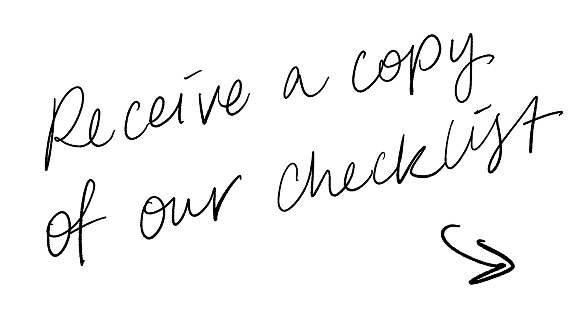 Receive a copy
of our checklist